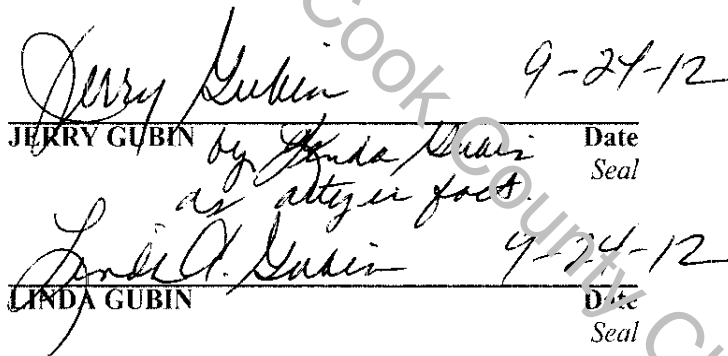 Cook County C
Jerry Gubin 9-24-12
JERRY GUBIN Date
by Linda Gubin Seal
as atty in fact.
Linda A. Gubin 9-24-12
LINDA GUBIN Date
Seal